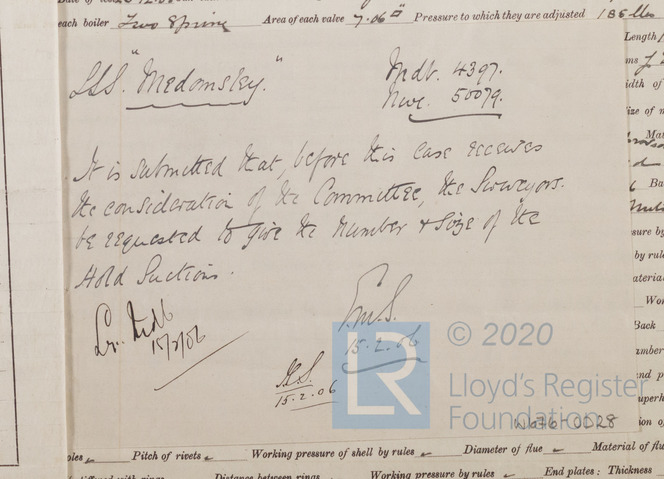 each boiler Two Spring Area of each valve 7.06" Pressure to which they are adjusted 185 lbs
Length
S.S.S. "Medomsley." Mdb. 4397.
Nwc. 50079.
It is submitted that, before this case receives
the consideration of the Committee, the Surveyors
be requested to give the number & size of the
Hold Suctions.
Lr. Mdb
15/2/06
F.M.S.
15.2.06
H.S.
15.2.06
LR
© 2020
Lloyd's Register
Foundation
W676-0028
oles Pitch of rivets Working pressure of shell by rules Diameter of flue Material of flu
Distance between rings Working pressure by rules End plates: Thickness